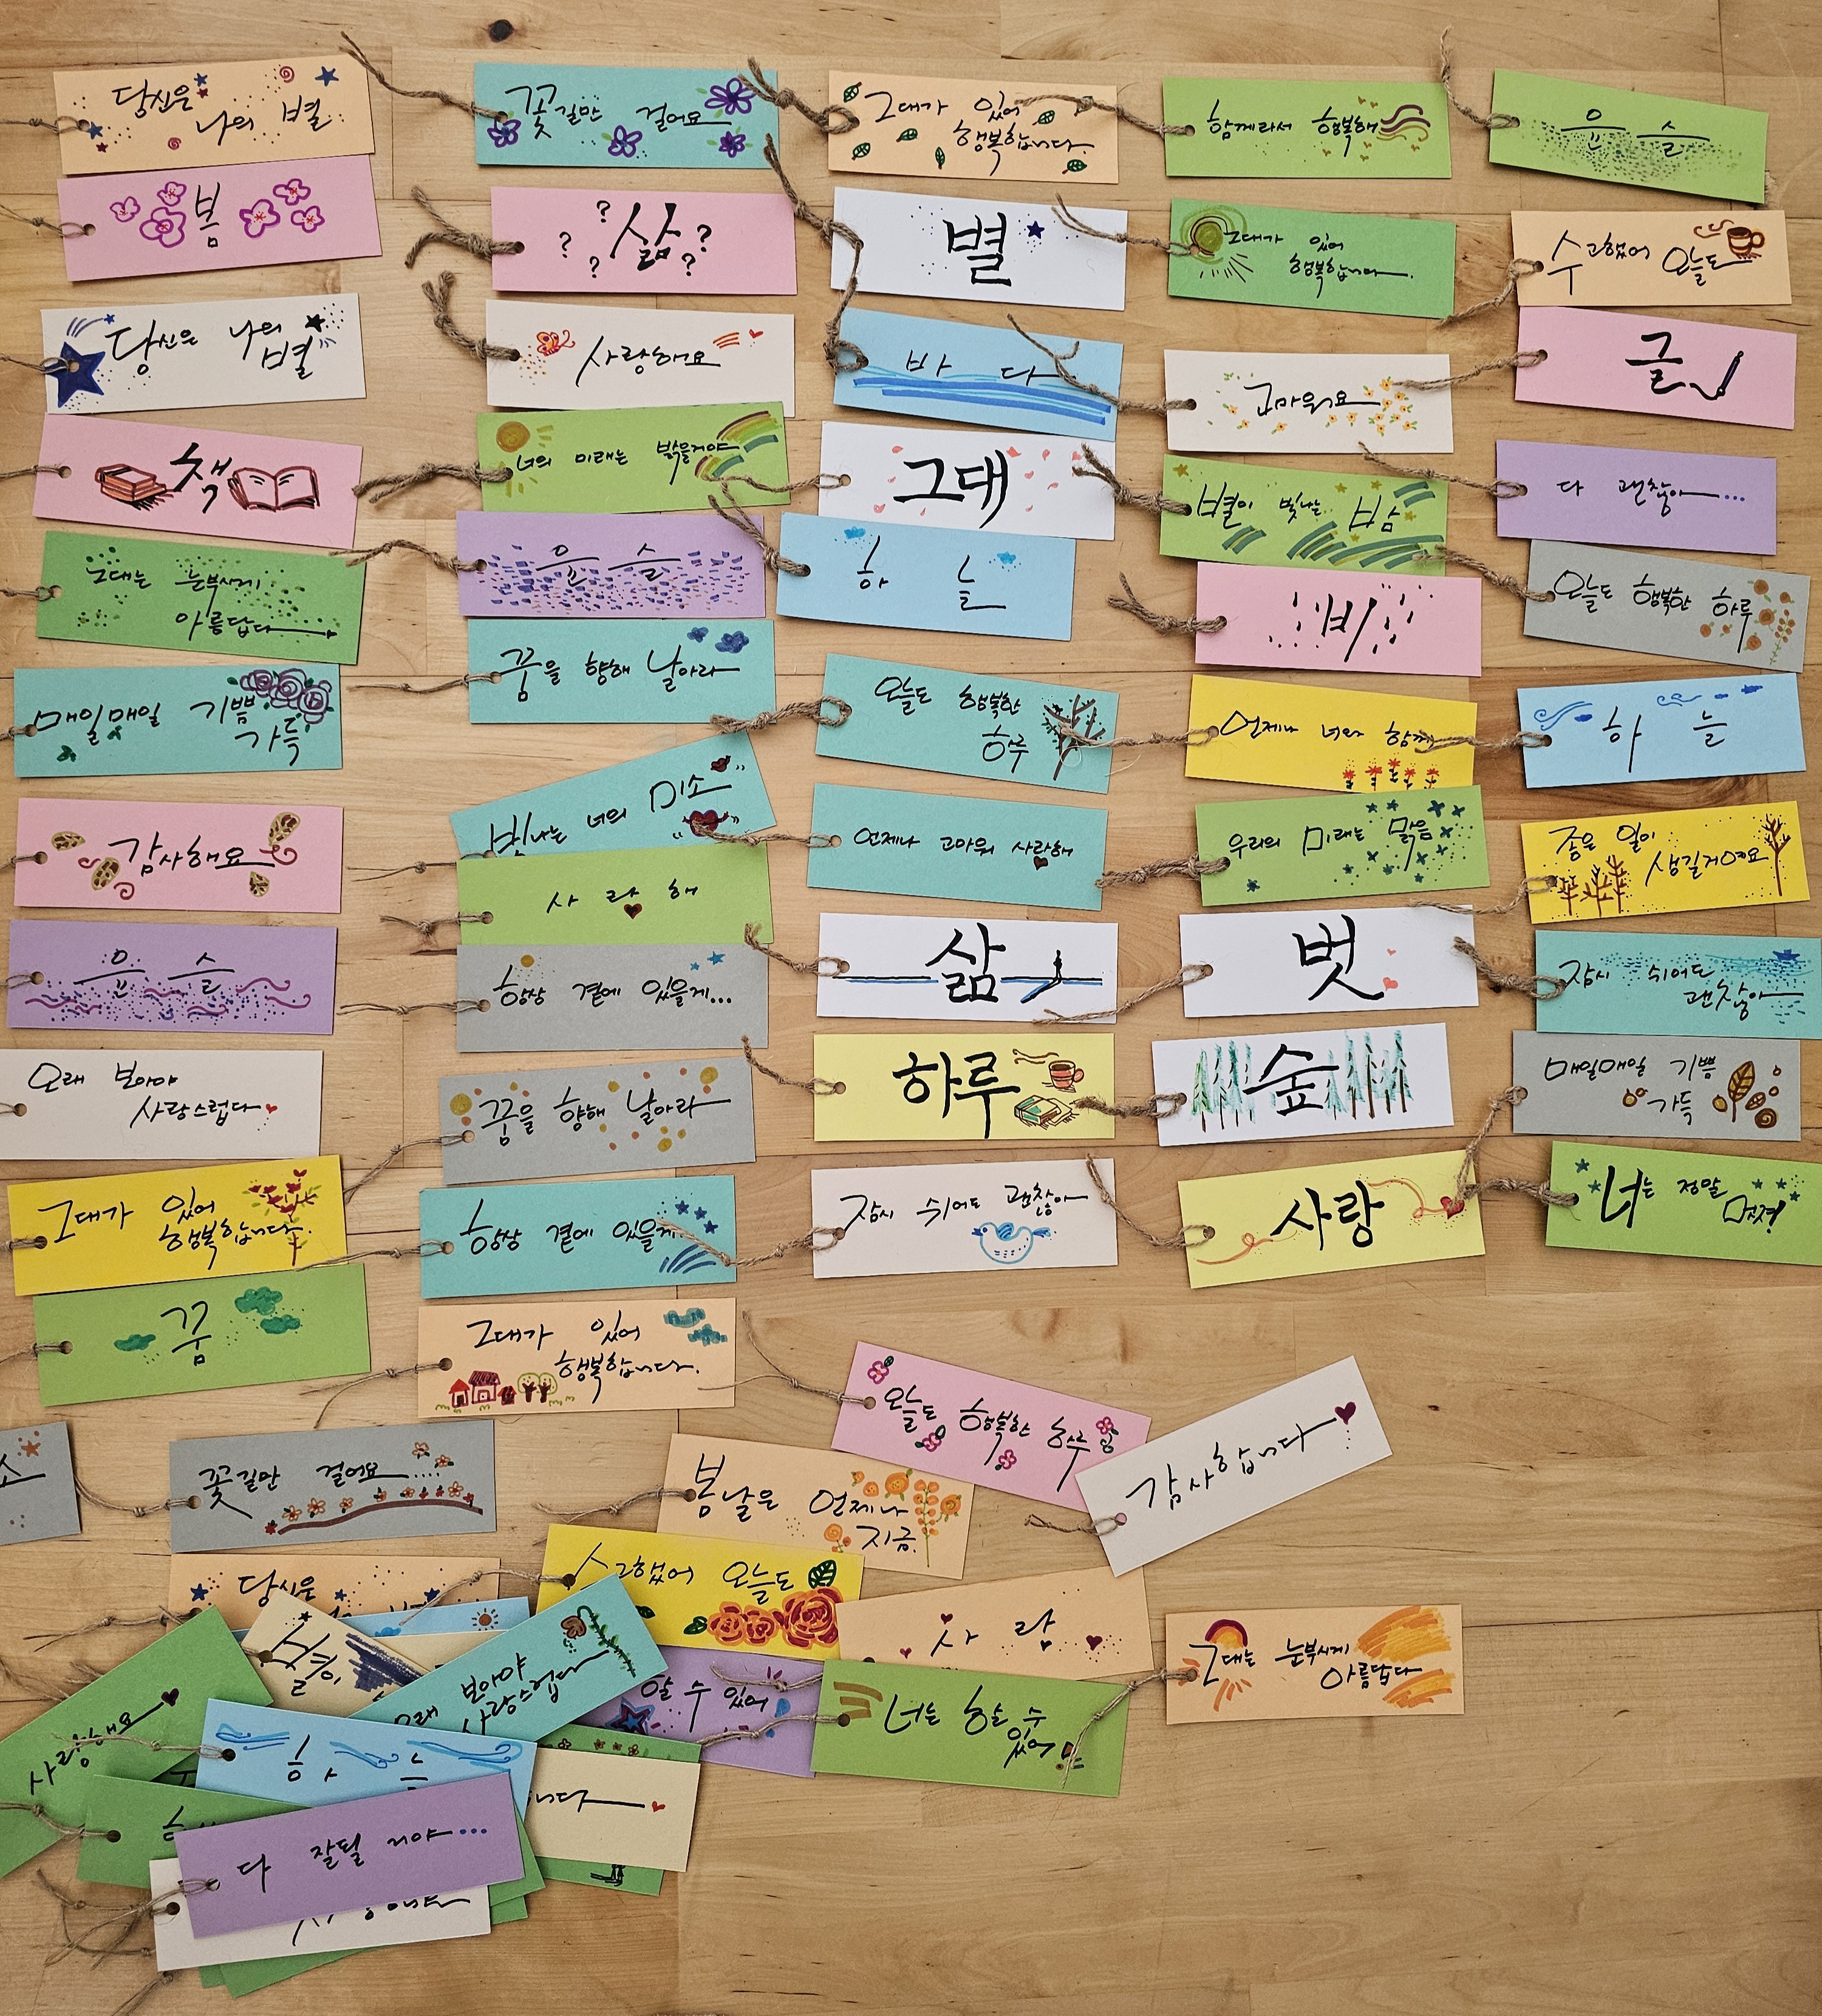 당신은 나의 별
봄
당신은 나의
별
책
그대는 눈부시게
아름답다
매일매일 기쁨
가득
감사해요
윤슬
오래 보아야
사랑스럽다
그대가 있어
행복합니다.
꿈
꽃길만 걸어요
삶
? ? ? ? ? ?
사랑해요
너의 미래는 밝을거야
윤슬
꿈을 향해 날아라
빛나는 너의 미소
사랑해
항상 곁에 있을게...
꿈을 향해 날아라
항상 곁에 있을게
그대가 있어
행복합니다.
그대가 있어
행복합니다.
별
바다
그대
하늘
오늘도 행복한
하루
언제나 고마워 사랑해
삶
하루
잠시 쉬어도 괜찮아
함께라서 행복해
그대가 있어
행복합니다.
고마워요
별이 빛나는 밤
비
언제나 너와 함께
우리의 미래는 맑음
벗
숲
사랑
윤슬
수고했어 오늘도
글
다 괜찮아...
오늘도 행복한 하루
하늘
좋은 일이
생길거예요
잠시 쉬어도
괜찮아
매일매일 기쁨
가득
너는 정말
멋져!
소
꽃길만 걸어요....
봄날은 언제나
지금.
오늘도 행복한 하루
감사합니다
당신은
수고했어 오늘도
사랑
그대는 눈부시게
아름답다
별이
오래 보아야
사랑스럽다
할 수 있어
너는 할 수
있어
사랑해요
하늘
니다
다 잘될 거야...